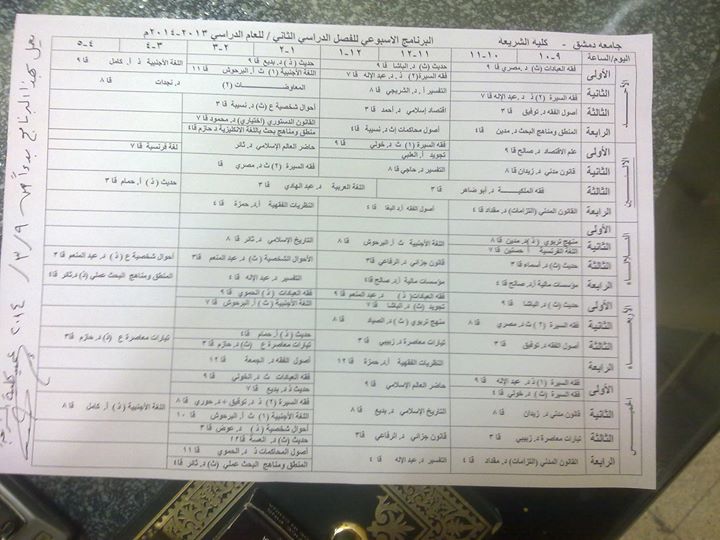 جامعه دمشق - كلية الشريعه البرنامج الاسبوعي للفصل الدراسي الثاني / للعام الدراسي ٢٠١٣-٢٠١٤م
اليوم/الساعة ٩-١٠ ١٠-١١ ١١-١٢ ١٢-١ ١-٢ ٢-٣ ٣-٤ ٤-٥
الأحد
الأولى فقه العبادات (ث) د. مصري قا ٩ حديث (ث) د. الباشا قا ٩ حديث (ذ) د. بديع قا ٩ اللغة الأجنبية ذ أ. كامل قا ٩
فقه السيرة (٢) ذ د. عبد الإله قا ٧ اللغة الأجنبية (١) ث أ. البرحوش قا ١١
الثانية فقه السيرة (٢) ذ د. عبد الإله قا ٧ التفسير أ.د. الشربجي قا ٨ المعاوضات (٢) د. نجدات قا ٨
الثالثة أصول الفقه د. توفيق قا ٣ اقتصاد إسلامي د. أحمد قا ٣ أحوال شخصية ع (ث) د. نسيبة قا ٣
القانون الدستوري (اختياري) د. محمود قا ٧
الرابعة المنطق ومناهج البحث د. مدين قا ٤ أصول محاكمات ث د. نسيبة قا ٤ منطق ومناهج بحث باللغة الانكليزية د حازم قا٤
الاثنين
الأولى علم الاقتصاد د. صالح قا ٩ فقه السيرة (١) ث د. خولي قا ٩ حاضر العالم الإسلامي د. ثائر لغة فرنسية قا ٧
تجويد أ. العلبي
الثانية قانون مدني د. زيدان قا ٨ التفسير د. حاجي قا ٨ فقه السيرة (٢) ث د. مصري قا
الثالثة فقه الملكيـة د. أبو ضاهر قا ٣ اللغة العربية د. عبد الهادي قا ٣ حديث (ذ) أ. حمام قا ٣
الرابعة القانون المدني (التزامات) د. مقداد قا ٤ أصول الفقه أ.د البغا قا ٤ النظريات الفقهية أ.د. حمزة قا ٤
الثلاثاء
الأولى
الثانية منهج تربوي (ذ) د. مدين قا ٨ اللغة الأجنبية ث أ. البرحوش قا ٨ التاريخ الإسلامي د. ثائر قا ٨
اللغة الفرنسية أ. حسنين قا ٧
الثالثة حديث (ث) د. أسماء قا ٣ قانون جزائي د. الرفاعي قا ٣ الأحوال الشخصية (ث) د. عبد المنعم قا ٣ أحوال شخصية ع (ذ) د. عبد المنعم قا ٣
الرابعة مؤسسات مالية أ.د. صالح قا٤ مؤسسات مالية أ.د. صالح قا٤ التفسير د. عبد الإله قا ٤ المنطق ومناهج البحث عملي (ذ) د. ثائر قا٤
الأربعاء
الأولى حديث (ث) د. الباشا قا ٩ فقه العبادات (ذ) د. عبد المنعم قا ٩ فقه العبادات (ذ) د. الحموي قا ٩
تجويد (ث) د. الباشا قا ٧ اللغة الأجنبية (ث) أ. البرحوش قا ٧
الثانية فقه السيرة (٢) ث د. مصري قا ٨ منهج تربوي (ث) د. الصياد قا ٨
الثالثة أصول الفقه د. توفيق قا ٣ تيارات معاصرة د. زبيبي قا ٣ حديث (ذ) أ. حمام قا٤ تيارات معاصرة ع (ذ) د. حازم قا ٣
تيارات معاصرة ع (ث) د. حازم قا ٣
الرابعة النظريات الفقهية أ.د. حمزة قا ١٢ أصول الفقه د. الجمعة قا ١٢
الخميس
الأولى فقه السيرة (١) ذ د. عبد الإله قا ٩ حاضر العالم الإسلامي قا ٩ فقه العبادات ث د. الخولي قا ٩
فقه السيرة (ث) د. خولي قا ٤ حديث ذ د. بديع قا ٧
الثانية قانون مدني د. زيدان قا ٨ التاريخ الإسلامي د. بديع قا ٨ فقه السيرة (٢) ذ د. توفيق + د. حوري قا ٨ اللغة الأجنبية (ذ) أ. كامل قا ٨
اللغة الأجنبية (١) ث أ. البرحوش قا ١٠
الثالثة تيارات معاصرة د. زبيبي قا ٣ قانون جزائي د. الرفاعي قا ٣ أحوال شخصية (ذ) د. عوض قا ٣
حديث (ث) د. العسة قا١٢
الرابعة القانون المدني (التزامات) د. مقداد قا ٤ التفسير د. عبد الإله قا ٤ أصول المحاكمات ذ د. الحموي قا ١١
المنطق ومناهج البحث عملي (ث) د. ثائر قا٤
يعمل بهذا البرنامج بدءاً من ٩ / ٣ / ٢٠١٤